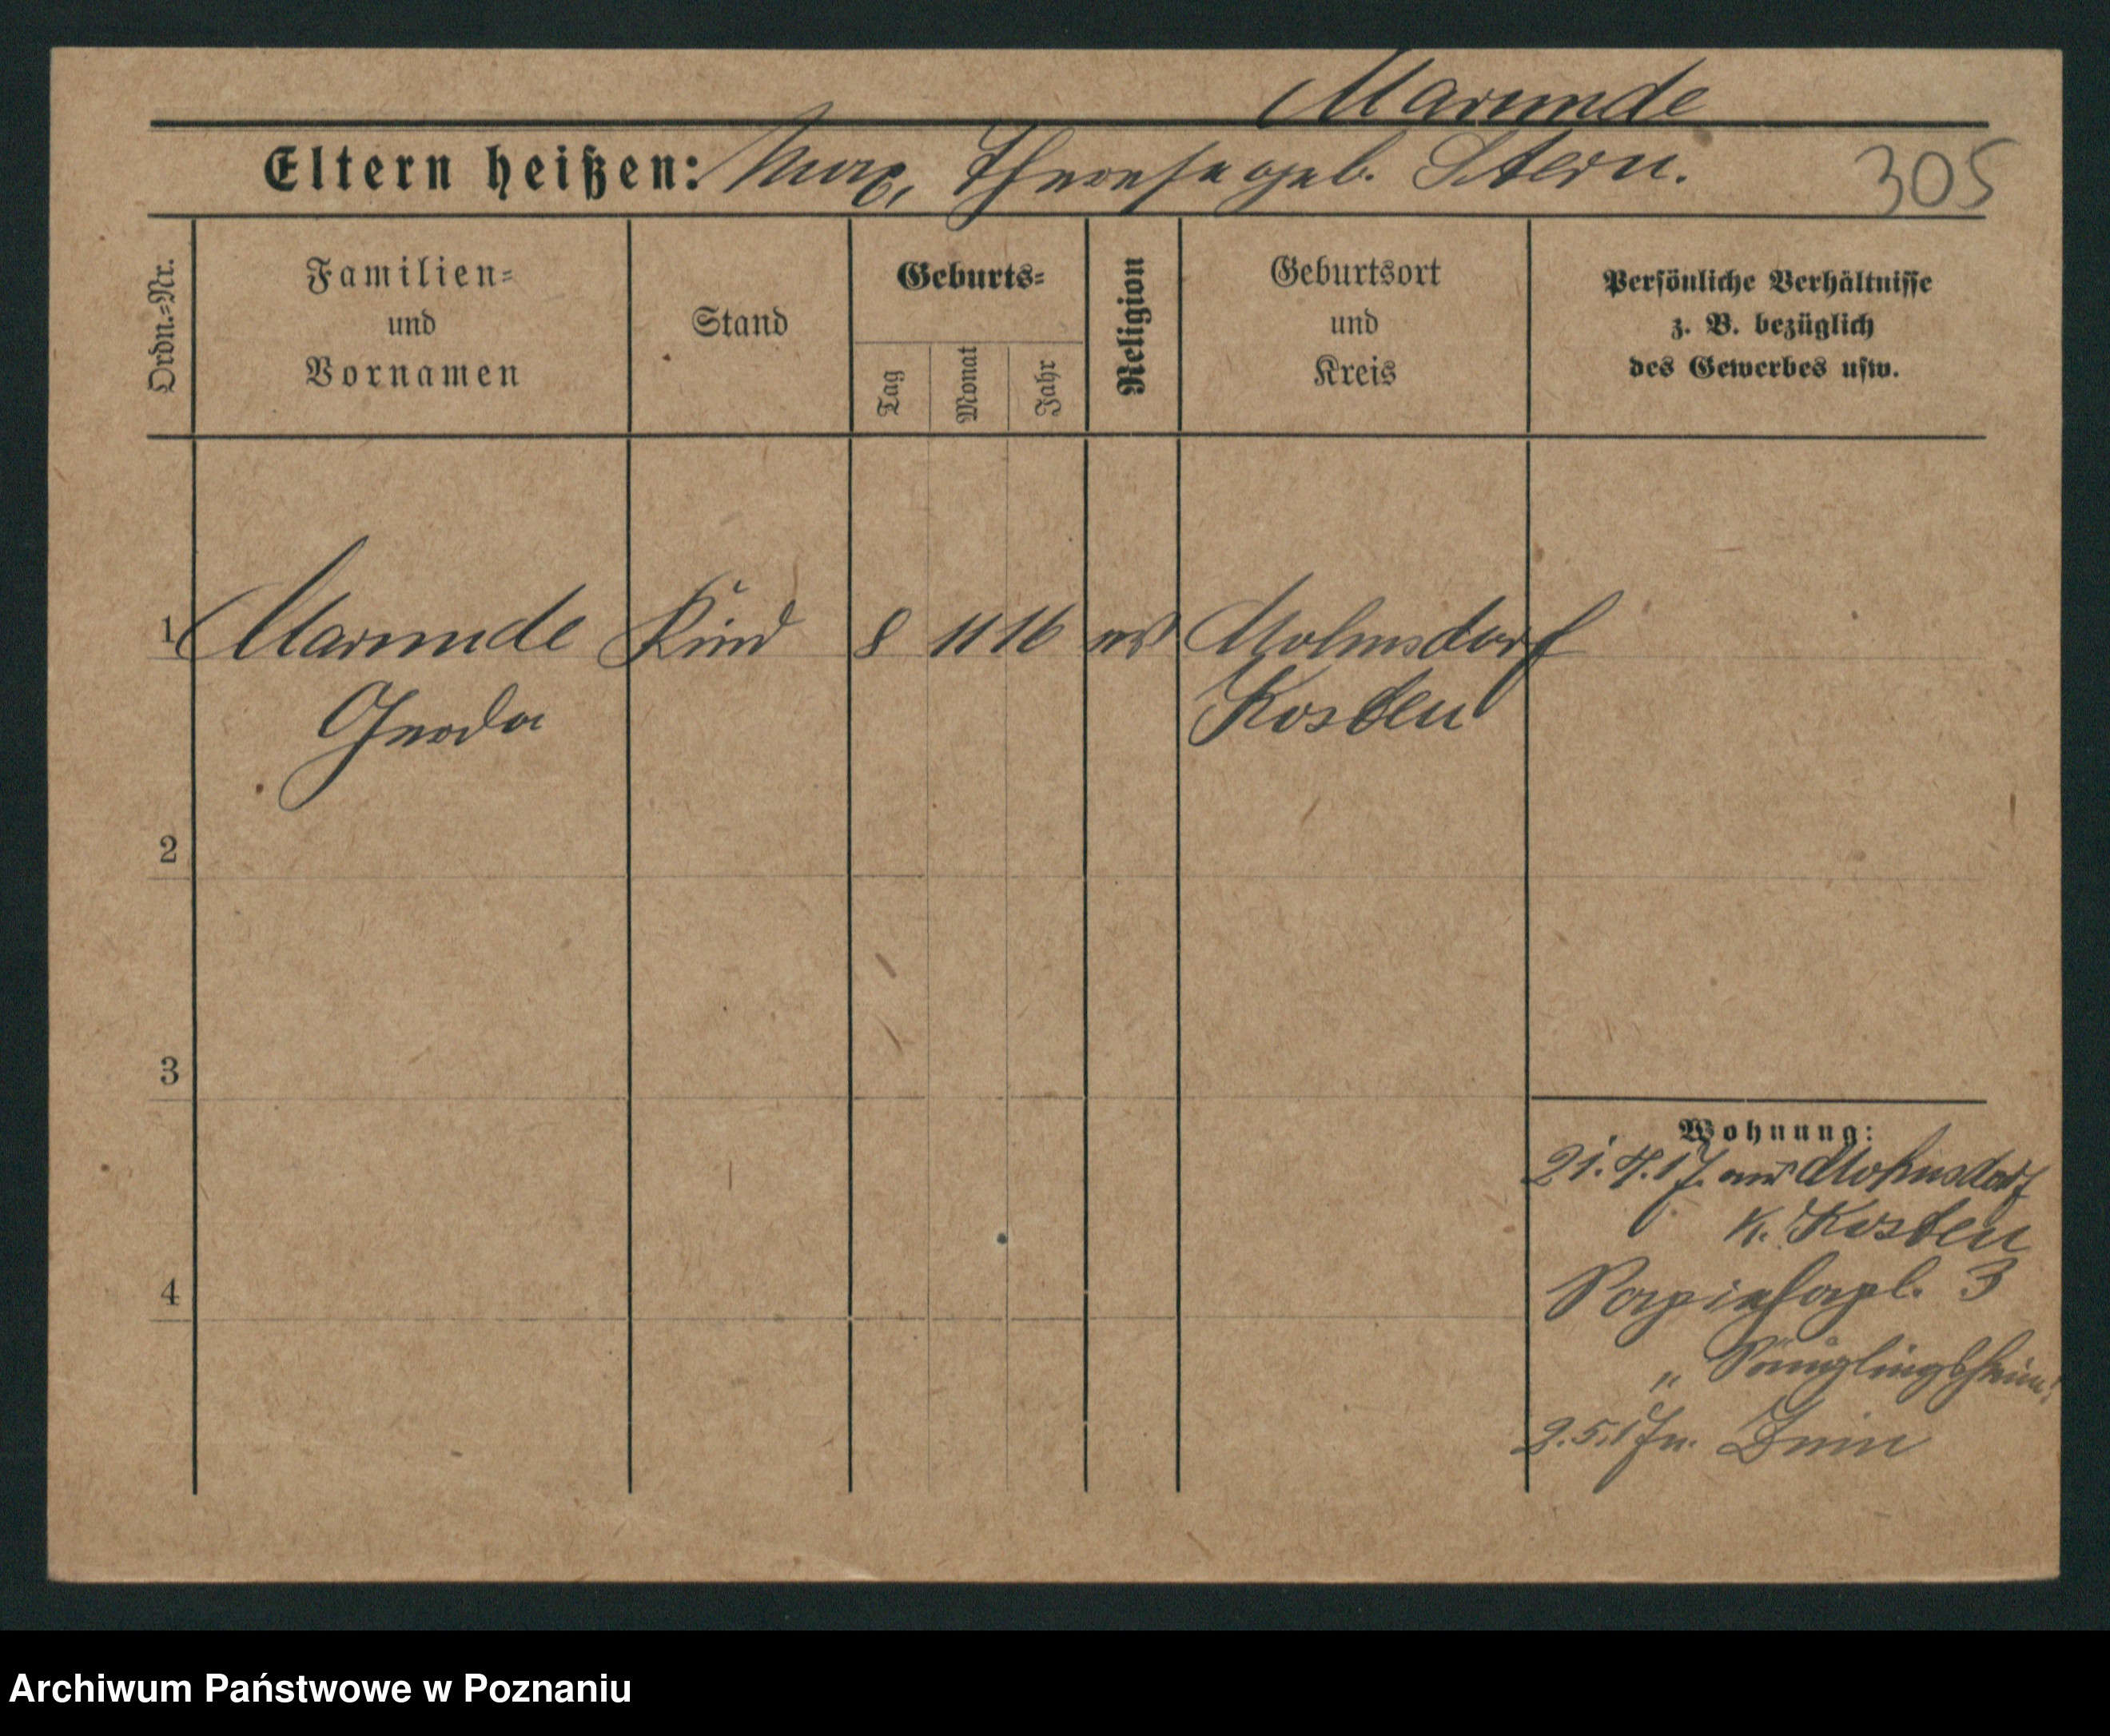 Marunde
Eltern heißen: Max, Therese geb. Stern.
305
Ordn.=Nr.
Familien=
und
Vornamen
Stand
Geburts=
Tag
Monat
Jahr
Religion
Geburtsort
und
Kreis
Persönliche Verhältnisse
z. B. bezüglich
des Gewerbes usw.
1 Marunde Kind 8 11 16 Mohnsdorf
Gerda Kosten
2
3
4
Wohnung:
21.4.17. aus Mohnsdorf
K. Kosten
Sapiehapl. 3
" Säuglingsheim
2.5.17 n. Znin
Archiwum Państwowe w Poznaniu